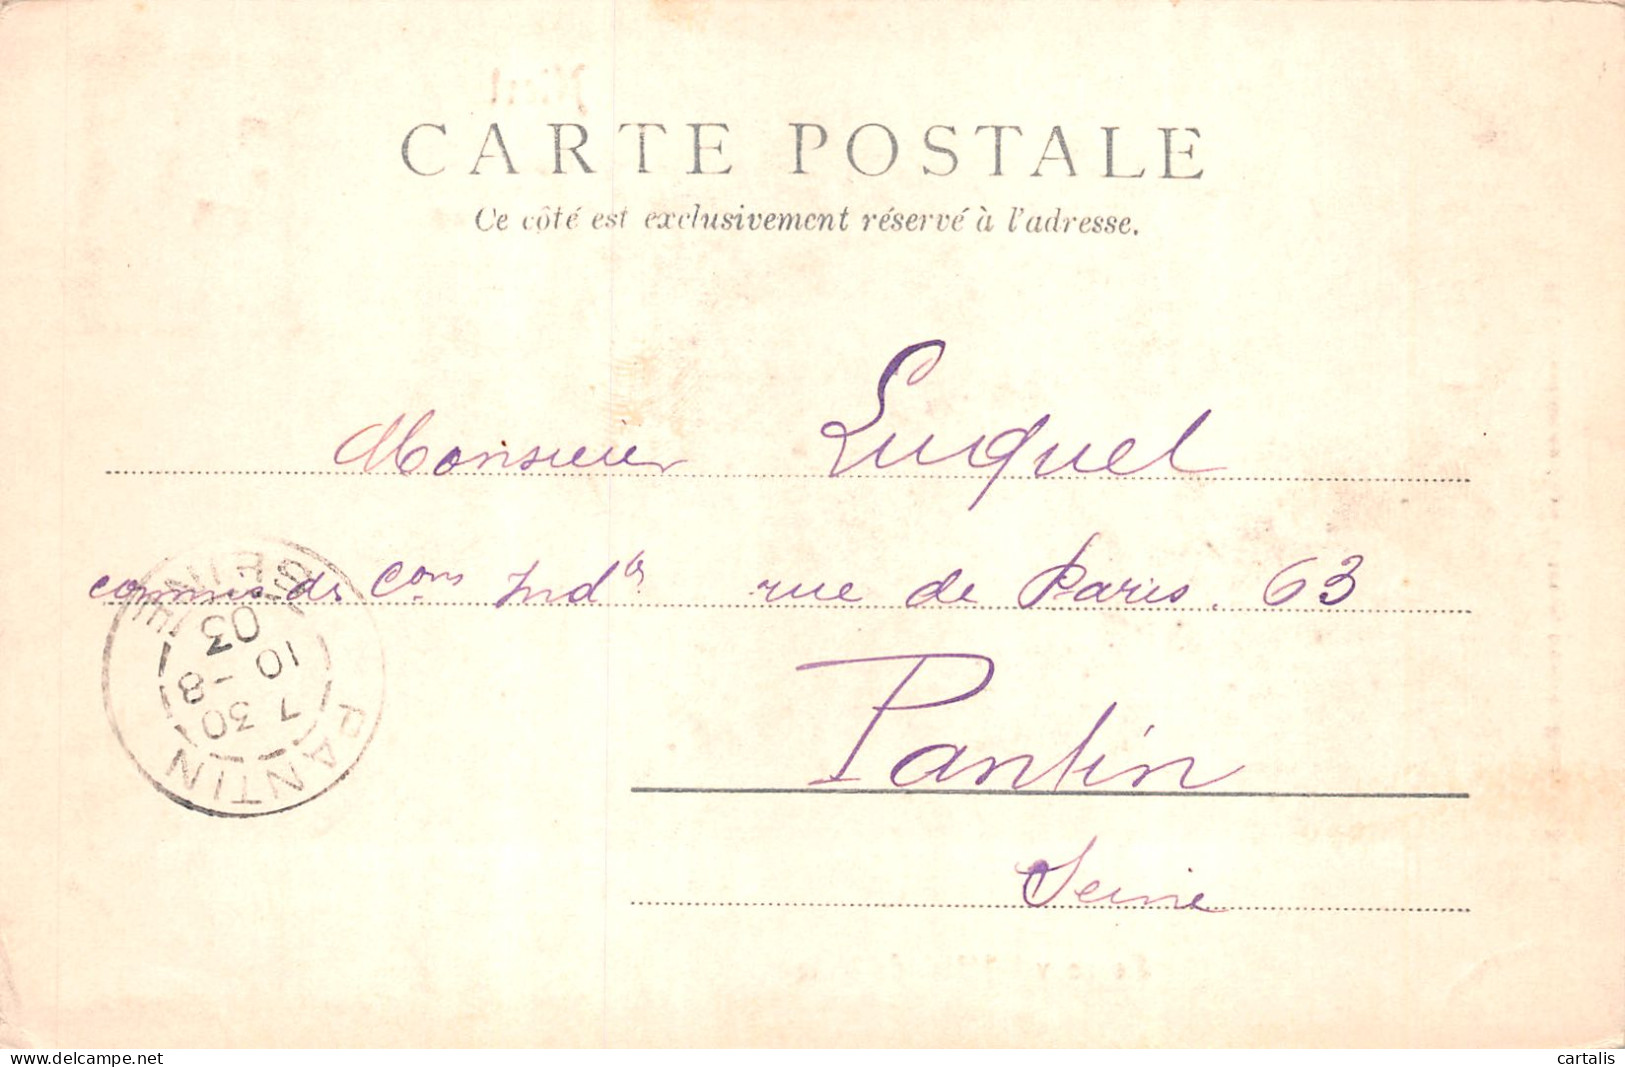 CARTE POSTALE
Ce côté est exclusivement réservé à l'adresse.
Monsieur Luquel
commis des Cons Indes rue de Paris. 63
Pantin
Seine
PANTIN
7 30
10 -8
03
SEINE
cartalis
delcampe.net